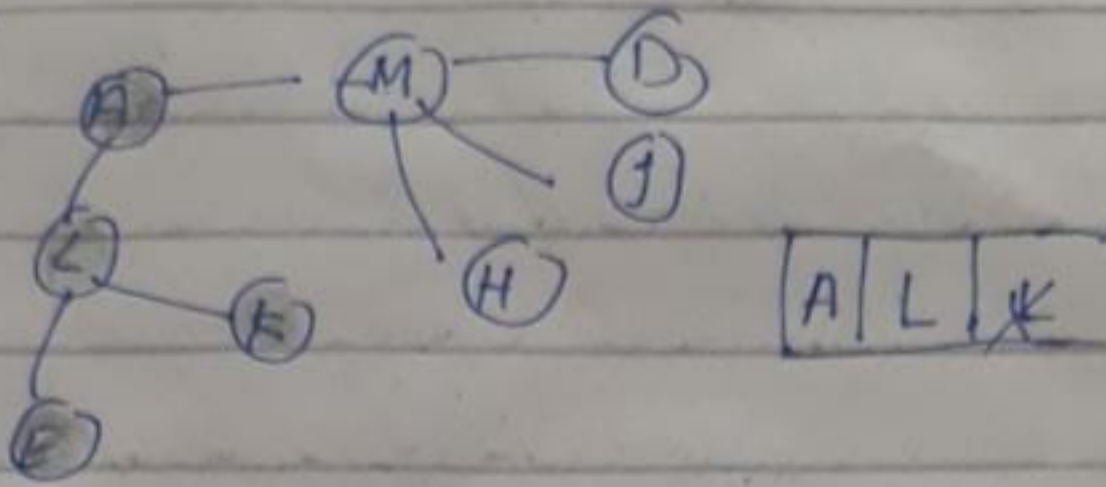 A M D
J
L
H
K
A L K